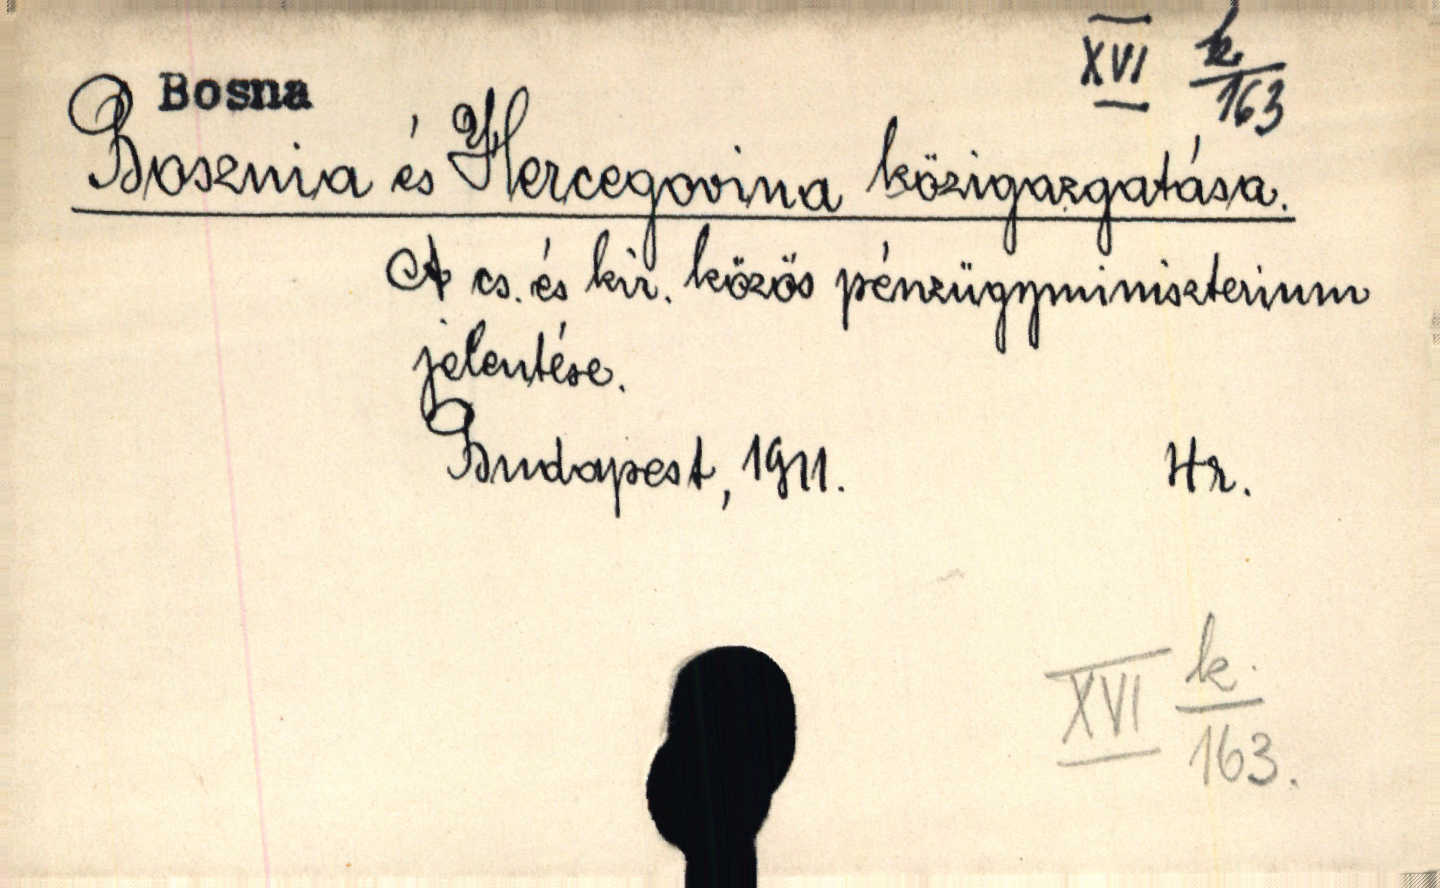 Bosna
XVI k./163
Bosznia és Hercegovina közigazgatása.
A cs. és kir. közös pénzügyminiszterium
jelentése.
Budapest, 1911. Hr.
XVI k./163.